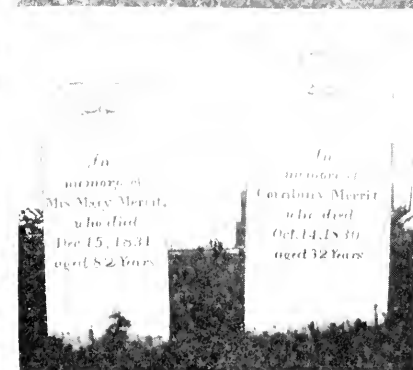 In
memory of
Mrs Mary Merrit,
who died
Dec 15, 1831
aged 82 Years
In
memory of
Merrit
who died
Oct. 14, 1830
aged 32 Years